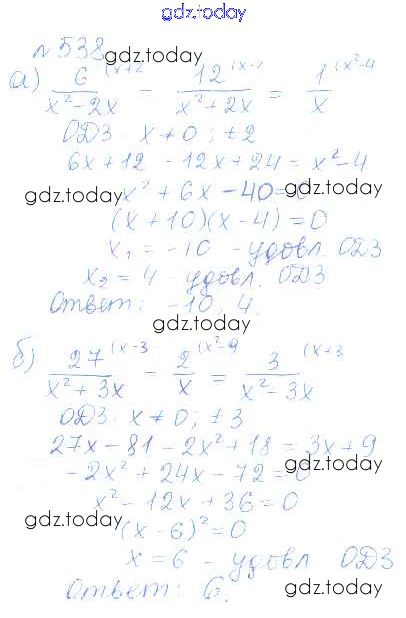 gdz.today
№ 538 gdz.today
а) 6/(x²-2x) (x+2 - 12/(x²+2x) (x-2 = 1/x (x²-4
ОДЗ x ≠ 0; ±2
6x+12 - 12x+24 = x²-4
gdz.today x² + 6x - 40 = 0 gdz.today
(x+10)(x-4) = 0
x₁ = -10 - удовл. ОДЗ
x₂ = 4 - удовл. ОДЗ
Ответ: -10, 4.
gdz.today
б) 27/(x²+3x) (x-3 - 2/x (x²-9 = 3/(x²-3x) (x+3
ОДЗ. x ≠ 0; ±3
27x - 81 - 2x² + 18 = 3x + 9
-2x² + 24x - 72 = 0 gdz.today
x² - 12x + 36 = 0
gdz.today (x-6)² = 0
x = 6 - удовл ОДЗ
Ответ: 6. gdz.today
gdz.today